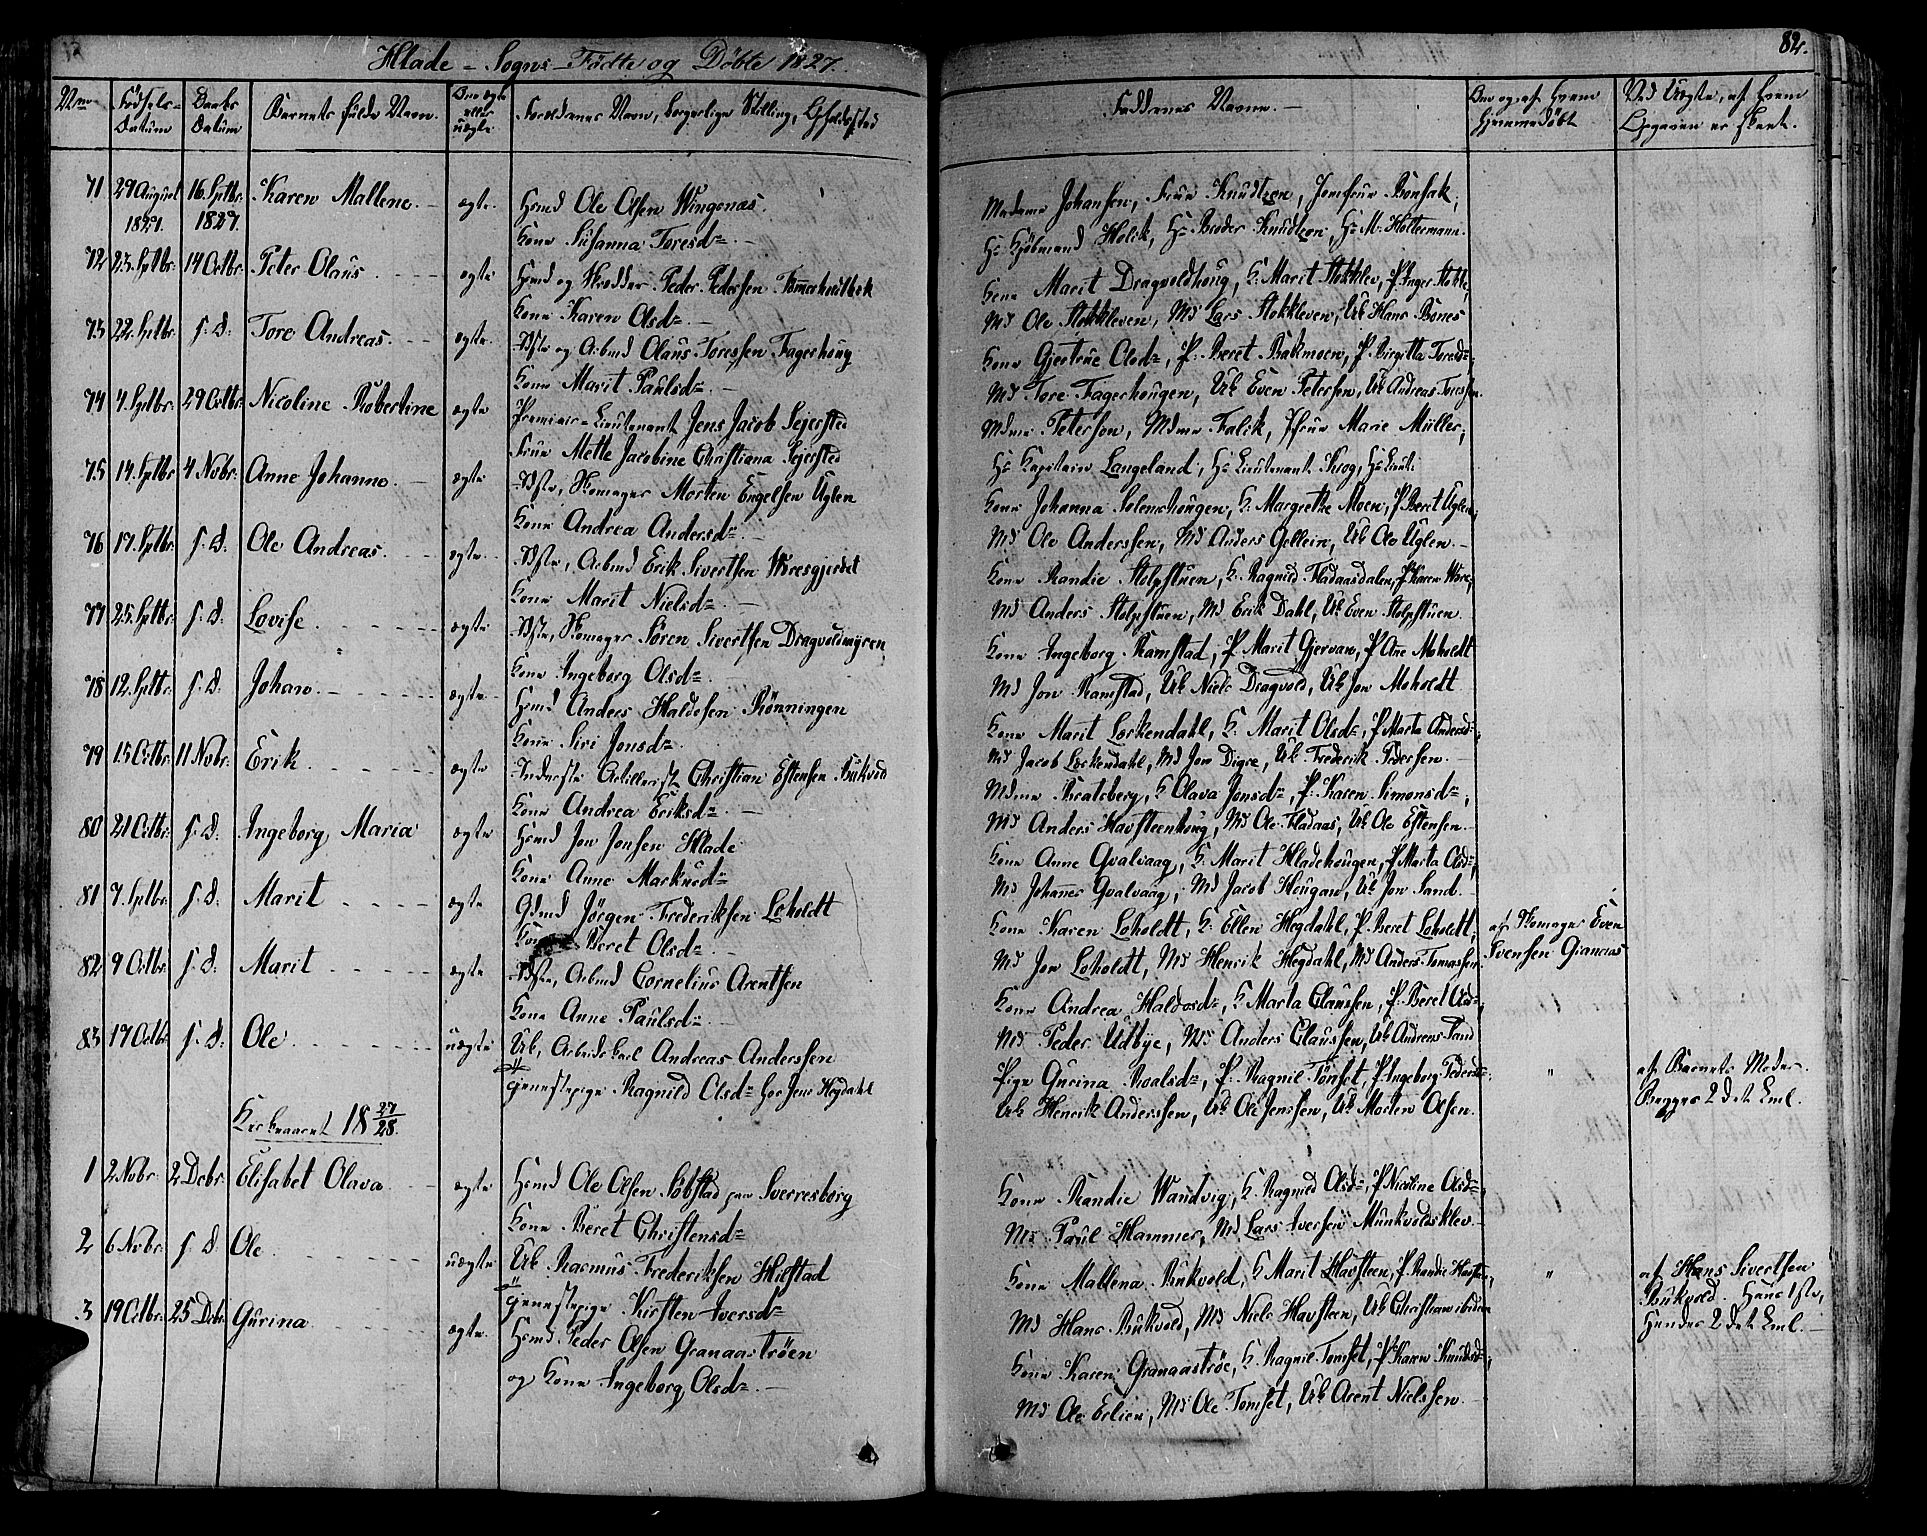 Hlade - Sogns - Fødte og Døbte 1827.
82.
Nro
Fødsels-
Datum
Daabs
Datum
Barnets fulde Navn.
Om ægte
eller
uægte
Forældrenes Navn, borgerlige Stilling, Opholdssted
Faddernes Navne. -
Om og af hvem
hjemmedøbt
Ved Uægte, af hvem
Opgaven er skeet.
71 29 August 16. Septbr. Karen Mallene. - ægte. Hsmd Ole Olsen Wingenæs.
1827. 1827.
Kone Susanna Toresdr. -
Madame Johansen, Frue Knudtzon, Jomfrue Bonsak,
Hr Kjøbmand Holck, Hr Broder Knudtzon, Hr M. Holtermann.
72 23. Septbr. 14 Octbr. Peter Olaus ægte Hsmd og Skrædder Peder Pedersen
Kone Karen Olsdr. -
Kone Marit Dragvoldhoug, K. Marit Stokklev, P. Inger Stokke,
Md Ole Stokkleven, Md Lars Stokkleven, Uk Hans Bones
73 22. Septbr. s. D. Tore Andreas. ægte. Idste og Arbmd Olaus Toresen Fagerhoug
Kone Marit Paulsdr. -
Kone Gjertrue Olsdr, P. Beret Bakmoen, P. Birgitta Toresdr,
Md Tore Fagerhougen, Uk Even Petersen, Uk Andreas Toressen.
74 4. Septbr. 29 Octbr. Nicoline Robertine ægte Premier-Lieutenant Jens Jacob Sejersted
Frue Mette Jacobine Christiana Sejersted
Mdme Peterson, Mdme Falck, Jfrue Marie Müller,
Hr Kapitain Langeland, Hr Lieutenant Krog, Hr Lieut:
75 14. Septbr. 4 Novbr. Anne Johanne. ægte Idste, Skomager Morten Engelsen Uglen
Kone Andrea Andersdr. -
Kone Johanna Solemshougen, K. Margrethe Moen, P. Beret Uglen,
Md Ole Anderssen, Md Anders Gellein, Uk Ole Uglen. -
76 17. Septbr. s. D. Ole Andreas. ægte. Idste, Arbmd Erik Sivertsen Wiresgjerdet
Kone Marit Nielsdr. -
Kone Randie Stolpstuen, K. Ragnild Fladaasdalen, P. Karen Wire,
Md Anders Stolpstuen, Md Erik Dahl, Uk Even Stolpstuen.
77 25. Septbr. s. D. Lovise. ægte Idste, Skomager Søren Sivertsen Dragvoldmyren
Kone Ingeborg Olsdr. -
Kone Ingeborg Ramstad, P. Marit Gjervan, P. Ane Moholdt
Md Jon Ramstad, Uk Niels Dragvold, Uk Jon Moholdt
78 12. Septbr. s. D. Johan. ægte Hsmd Anders Haldosen Rønningen
Kone Siri Jonsdr.
Kone Marit Lerkendahl, K. Marit Olsdr, P. Marta Andersdr,
Md Jacob Lerkendahl, Md Jon Digre, Uk Frederik Pedersen. -
79 15 Octbr. 11 Novbr. Erik. ægte Inderste Artillerist Christian Estensen Bukvold
Kone Andrea Eriksdr. -
Mdme Bratsberg, K Olava Jonsdr, P. Karen Simonsdr,
Md Anders Havsteenhoug, Md Ole Fladaas, Uk Ole Estensen. -
80 21 Octbr. s. D. Ingeborg Maria ægte Hsmd Jon Jonsen Hlade
Kone Anne Markusdr
Kone Anne Qvalvaag, K. Marit Hladehougen, P. Marta Olsdr,
Md Johannes Qvalvaag, Md Jacob Hougan, Uk Jon Sand. -
81 7. Septbr. s. D. Marit ægte Gdmd Jørgen Frederiksen Loholdt
Kone Beret Olsdr. -
Kone Karen Loholdt, K. Ellen Hegdahl, P. Beret Loholdt,
Md Jon Loholdt, Md Henrik Hegdahl, Md Anders Tomassen.
af Skomager Even
Svensen
82 9 Octbr. s. D. Marit ægte Idste, Arbmd Cornelius Arentsen
Kone Anne Paulsdr. -
Kone Andrea Haldosdr, K Marta Claussen, P. Beret Olsdr,
Md Peder Udbye, Md Anders Claussen, Uk Andreas Sand
83 17 Octbr. s. D. Ole. uægte Uk, Arbeidskarl Andreas Anderssen
Tjenestepige Ragnild Olsdr hos Jens Hegdahl
Pige Gurina Roalsdr, P. Ragnil Tønset, P. Ingeborg Pedersdr,
Uk Henrik Anderssen, Uk Ole Jenssen, Uk Morten Olsen.
"
af Barnets Moder.
Begges 2det Leml.
Kirkeaaret 18 27/28.
1 2 Novbr. 2 Decbr. Elisabet Olava. ægte Hsmd Ole Olsen Søbstad paa Sverresborg
Kone Beret Christensdr
Kone Randie Wandvig, K. Ragnild Olsdr, P. Nicoline Olsdr,
Md Paul Hammer, Md Lars Iversen Munkvoldsklev. -
2 6 Novbr. s. D. Ole uægte Uk Rasmus Frederiksen Hiestad
Tjenestepige Kirsten Iversdr
Kone Mallena Bukvold, K Marit Havsteen, P. Randie Havsten,
Md Hans Bukvold, Md Niels Havsteen, Uk Christian ibidem
"
af Hans Sivertsen
Bukvold. Hans 1ste,
Hendes 2det Leml. -
3 19 Octbr. 25 Decbr. Gurina ægte. Hsmd Peder Olsen Granaastrøen
og Kone Ingeborg Olsdr. -
Kone Karen Granaastrøe, K. Ragnil Tomset, P. Karen Knudsdr,
Md Ole Erlien, Md Ole Tomset, Uk Arent Nielssen. -